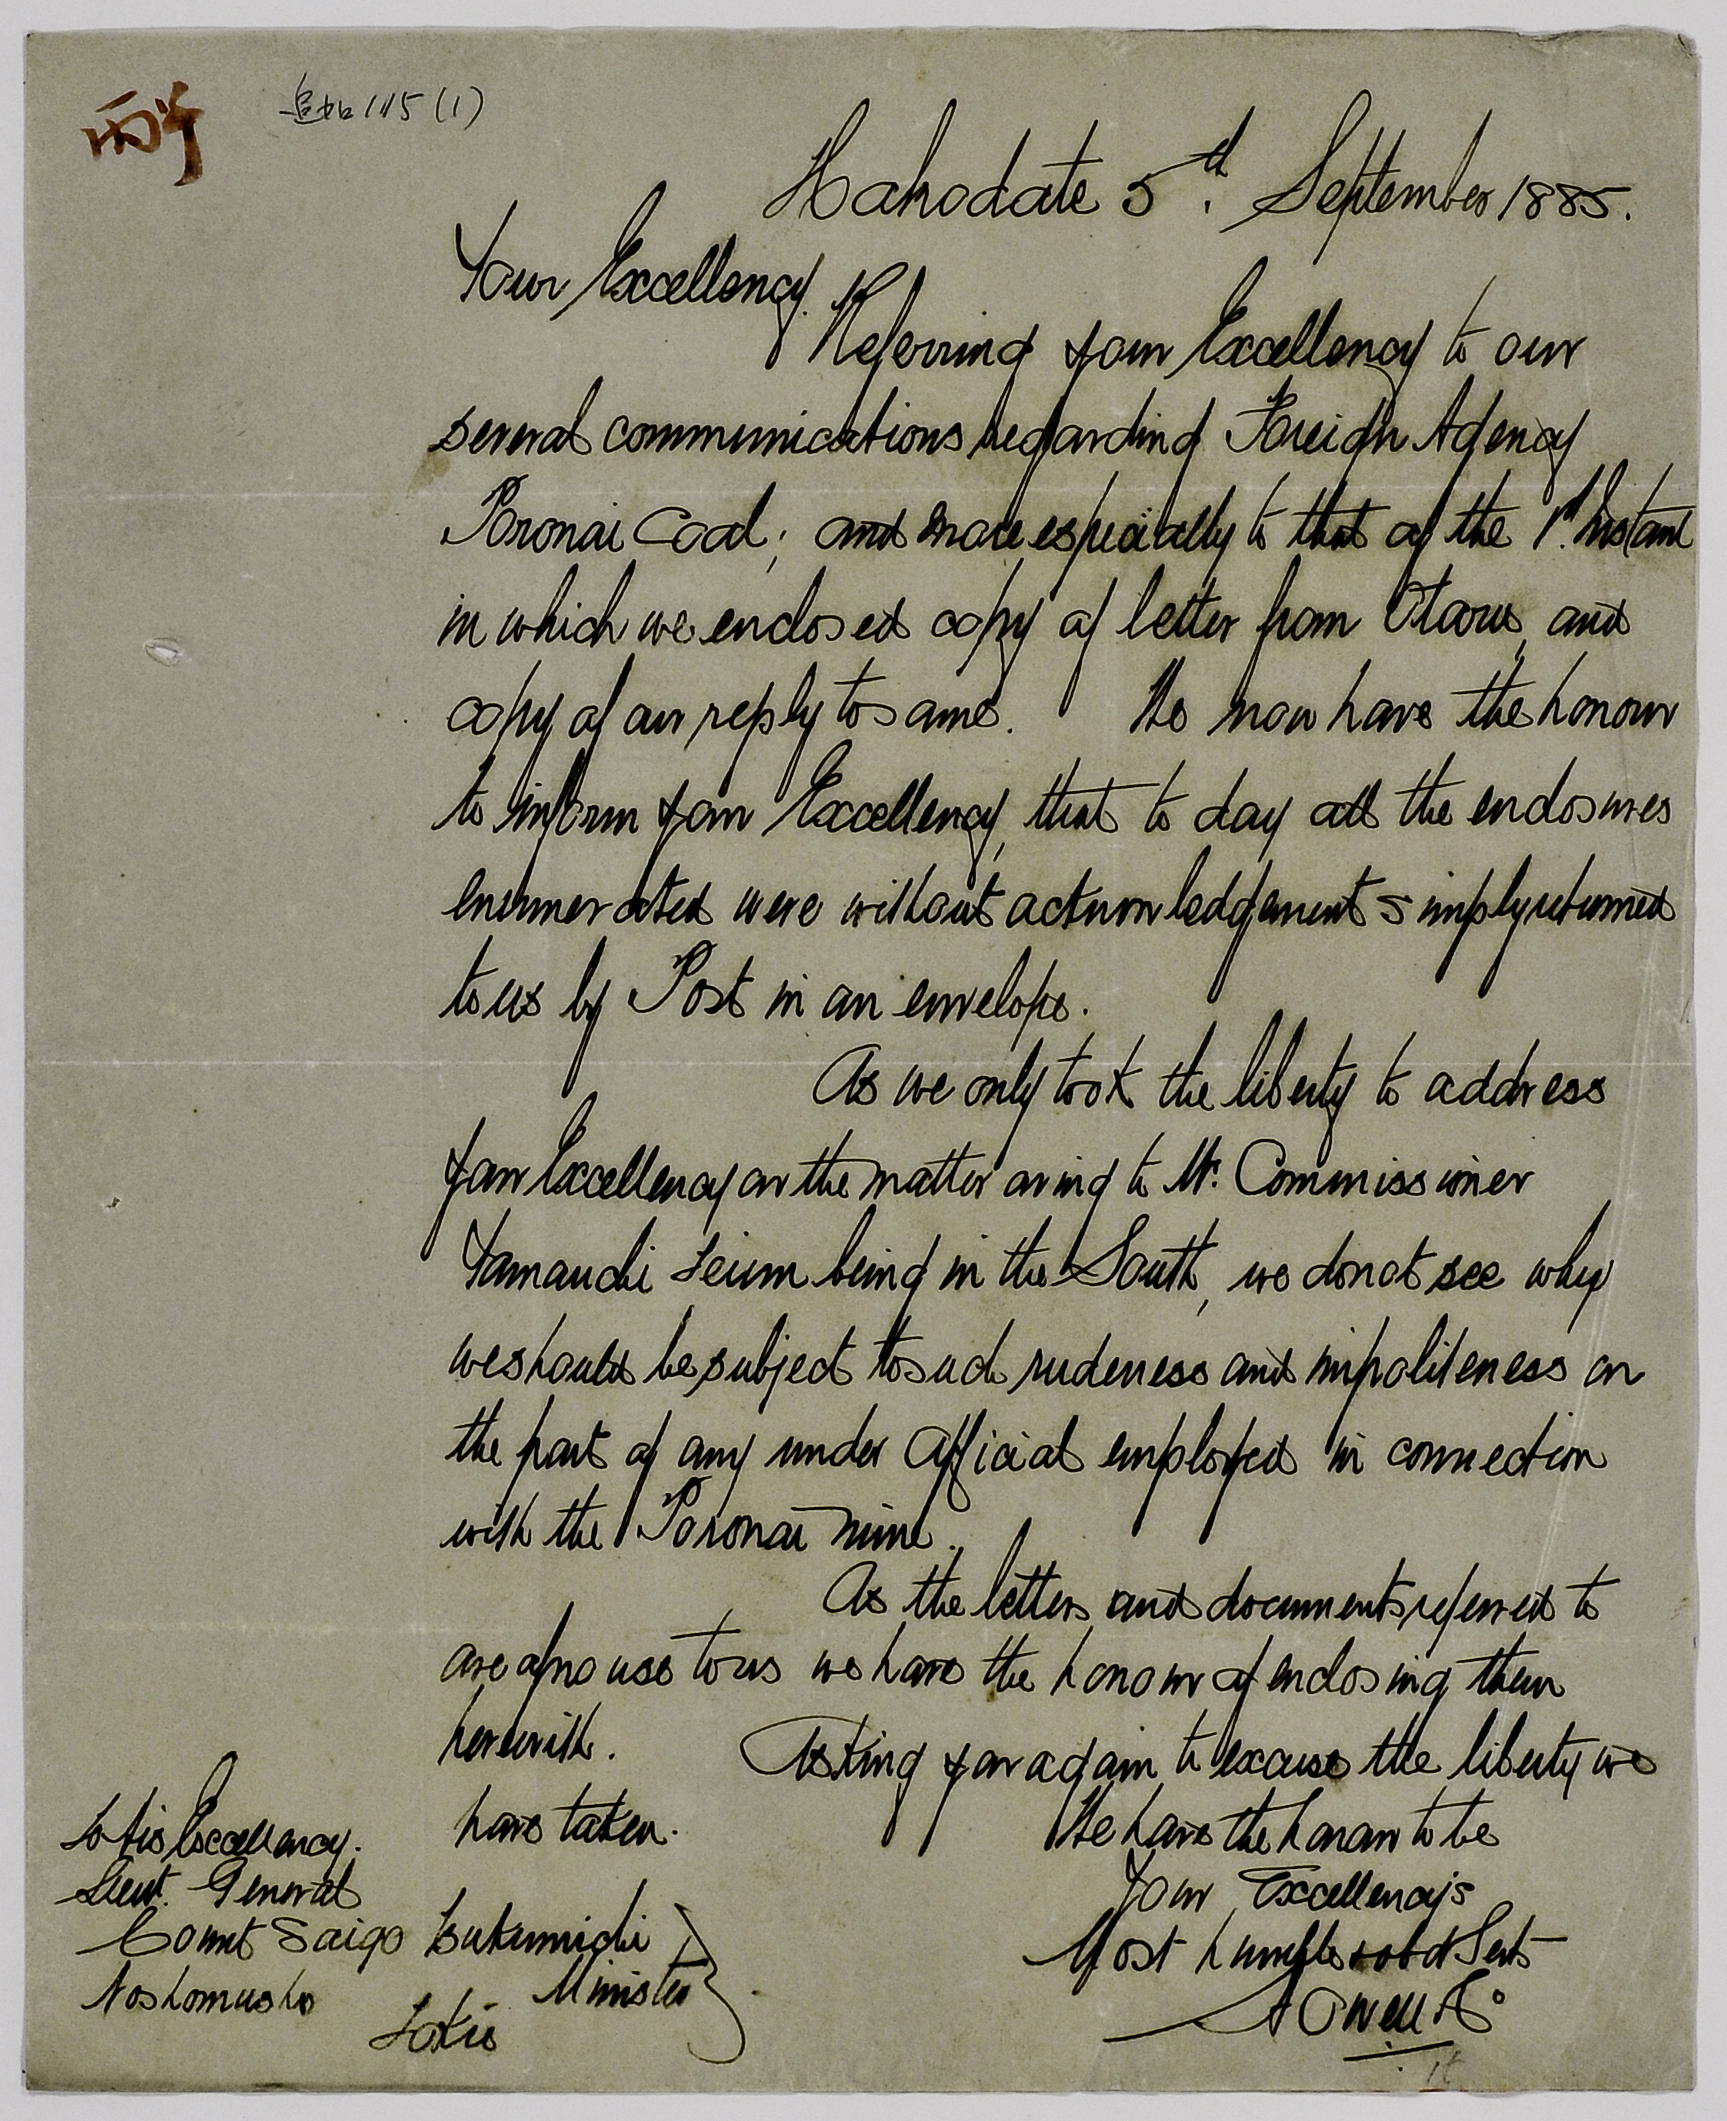 追加115(1)
Hakodate 5th. September 1885.
Your Excellency.
Referring your Excellency to our
several communications regarding Foreign Agency
Poronai Coal; and more especially to that of the 1st. Instant
in which we enclosed copy of letter from Otaru, and
copy of our reply to same. We now have the honour
to inform your Excellency, that to day all the enclosures
enumerated were without acknowledgement simply returned
to us by Post in an envelope.
As we only took the liberty to address
your Excellency on the matter owing to Mr. Commissioner
Yamauchi Teium being in the South, we do not see why
we should be subject to such rudeness and impoliteness on
the part of any under official employed in connection
with the Poronai mine.
As the letters and documents referred to
are of no use to us we have the honour of enclosing them
herewith. Asking your again to excuse the liberty we
have taken.
We have the honour to be
Your Excellency's
Most humble obdt Servts
A Owell & Co
To His Excellency.
Lieut. General
Count Saigo Tsukumichi
Noshomusho Minister
Tokio